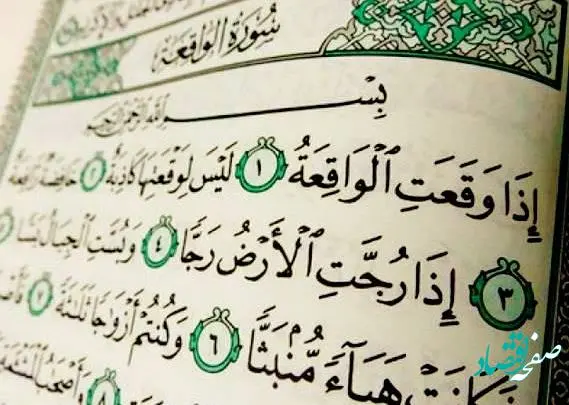 سُورَةُ الوَاقِعَة
بِسْمِ ٱللَّهِ ٱلرَّحْمَٰنِ ٱلرَّحِيمِ
إِذَا وَقَعَتِ ٱلْوَاقِعَةُ ١ لَيْسَ لِوَقْعَتِهَا كَاذِبَةٌ ٢ خَافِضَةٌ رَّافِعَةٌ
٣ إِذَا رُجَّتِ ٱلْأَرْضُ رَجًّا ٤ وَبُسَّتِ ٱلْجِبَالُ بَسًّا
فَكَانَتْ هَبَآءً مُّنۢبَثًّا ٦ وَكُنتُمْ أَزْوَٰجًا ثَلَٰثَةً ٧
٨ وَأَصْحَٰبُ
صفحه اقتصاد